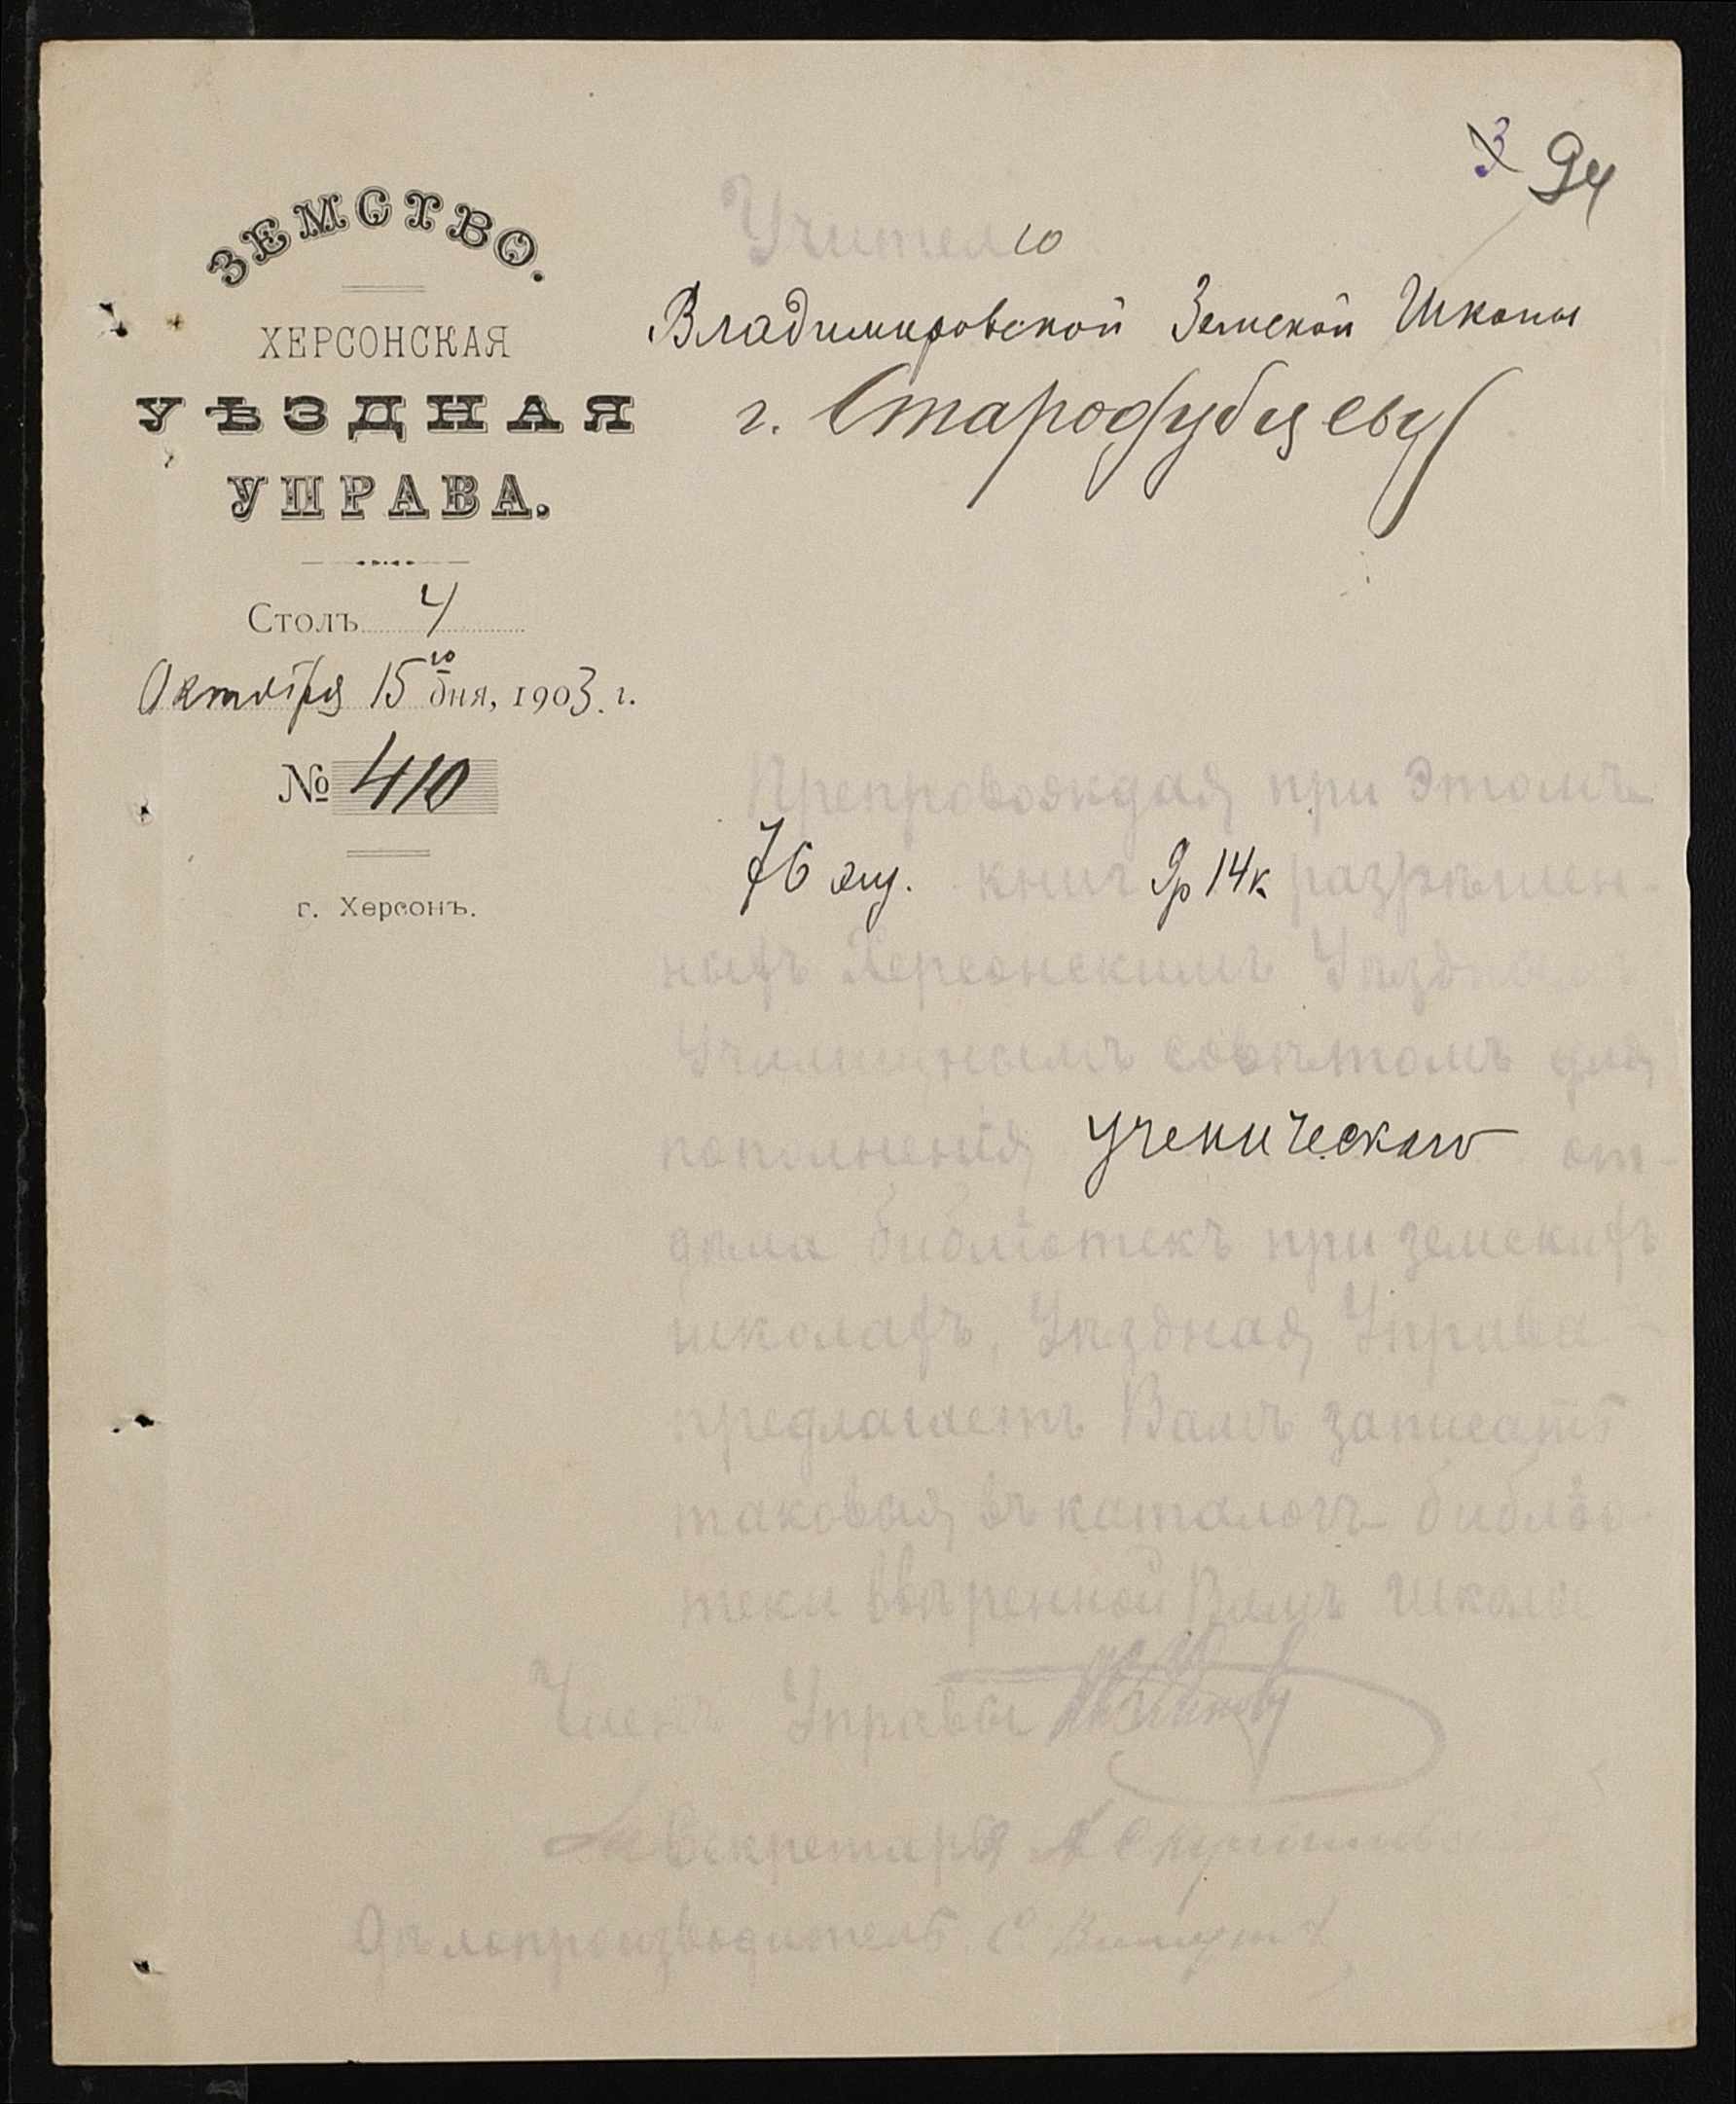 3 94
ЗЕМСТВО.
ХЕРСОНСКАЯ
УѢЗДНАЯ
УПРАВА.
Столъ 4
Октября 15го дня, 1903 г.
№ 410
г. Херсонъ.
Учителю
Владимировской Земской Школы
г. Стародубцеву
Препровождая при этомъ
76 экз. книг 9р 14к разрѣшен-
ныхъ Херсонскимъ Уѣзднымъ
Училищнымъ совѣтомъ для
пополненія ученическаго от-
дѣла библіотекъ при земскихъ
школахъ, Уѣздная Управа
предлагаетъ Вамъ записать
таковыя въ каталогъ библіо-
теки ввѣренной Вамъ школы
Членъ Управы
За Секретаря
Дѣлопроизводитель С.